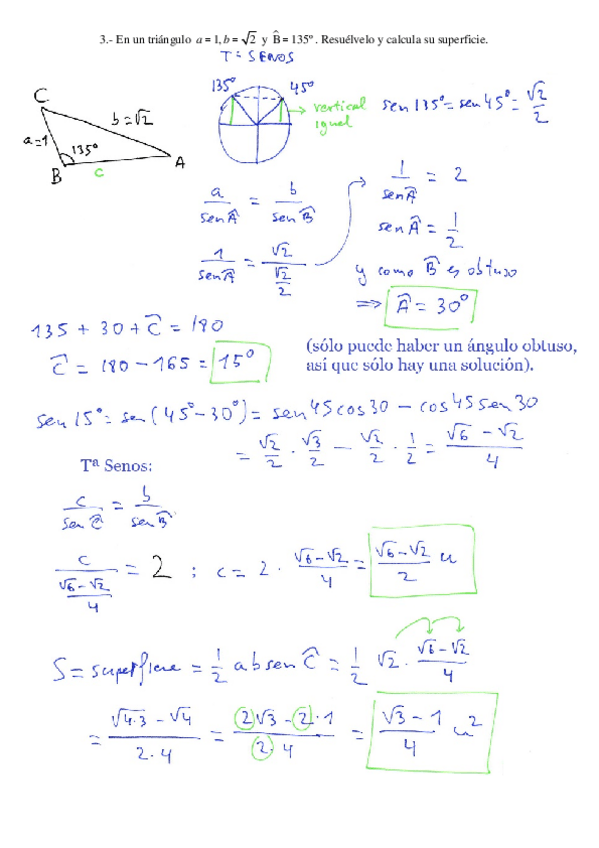 3.- En un triángulo a = 1, b = √2 y B̂ = 135º. Resuélvelo y calcula su superficie.
T = SENOS
C
b = √2
a = 1
135º
A
B
c
135º
45º
vertical
igual
sen 135º = sen 45º = √2/2
a/sen Â = b/sen B̂
1/sen Â = √2/(√2/2)
1/sen Â = 2
sen Â = 1/2
y como B̂ es obtuso
⇒ Â = 30º
135 + 30 + Ĉ = 180
Ĉ = 180 - 165 = 15º
(sólo puede haber un ángulo obtuso,
así que sólo hay una solución).
sen 15º = sen (45º - 30º) = sen 45 cos 30 - cos 45 sen 30
= √2/2 · √3/2 - √2/2 · 1/2 = (√6 - √2)/4
Tª Senos:
c/sen Ĉ = b/sen B̂
c/((√6 - √2)/4) = 2 ; c = 2 · (√6 - √2)/4 = (√6 - √2)/2 u
S = superficie = 1/2 a b sen Ĉ = 1/2 √2 · (√6 - √2)/4
= (√4·3 - √4)/(2·4) = (2√3 - 2·1)/(2·4) = (√3 - 1)/4 u²